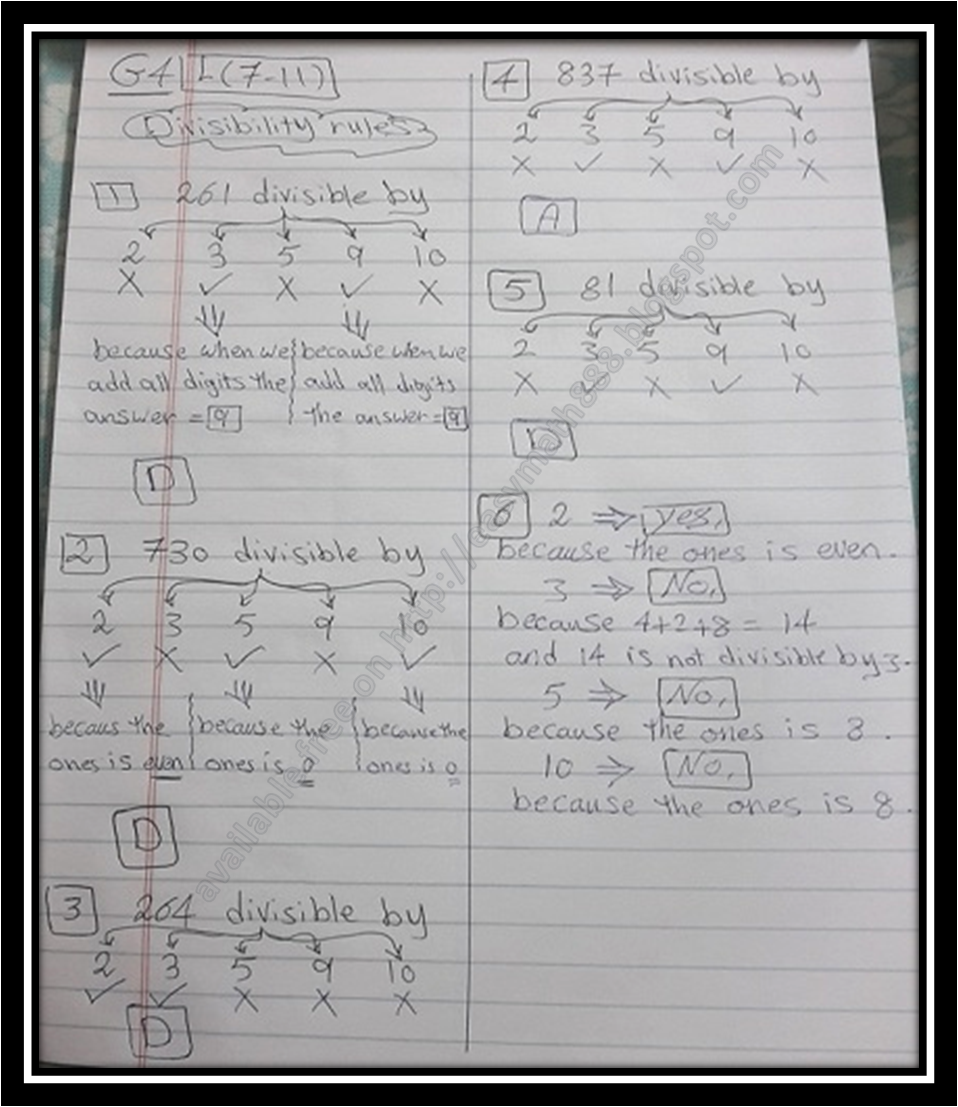 G4 L(7-11)
Divisibility rules
1 261 divisible by
2 3 5 9 10
X ✓ X ✓ X
because when we
add all digits the
answer = 9
because when we
add all digits
the answer = 9
D
2 730 divisible by
2 3 5 9 10
✓ X ✓ X ✓
becaus the
ones is even
because the
ones is 0
because the
ones is 0
D
3 264 divisible by
2 3 5 9 10
✓ ✓ X X X
D
4 837 divisible by
2 3 5 9 10
X ✓ X ✓ X
A
5 81 divisible by
2 3 5 9 10
X ✓ X ✓ X
D
6 2 ⇒ yes,
because the ones is even.
3 ⇒ No,
because 4+2+8 = 14
and 14 is not divisible by 3.
5 ⇒ No,
because the ones is 8.
10 ⇒ No,
because the ones is 8.
available free on http://easymath888.blogspot.com